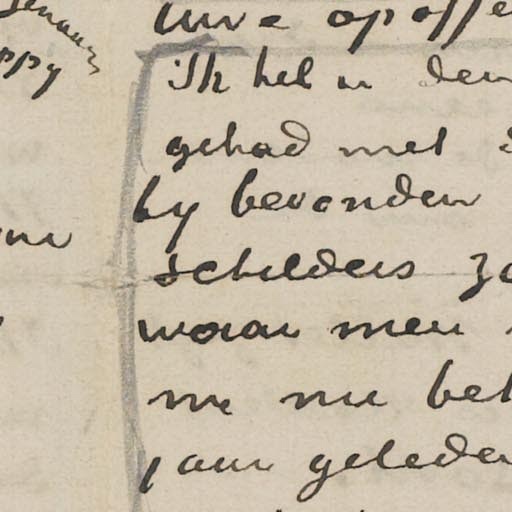 opoffe
Ik heb u den
gehad met
by bevonden
schilders zo
waar men
me nu bet
jaar geleden